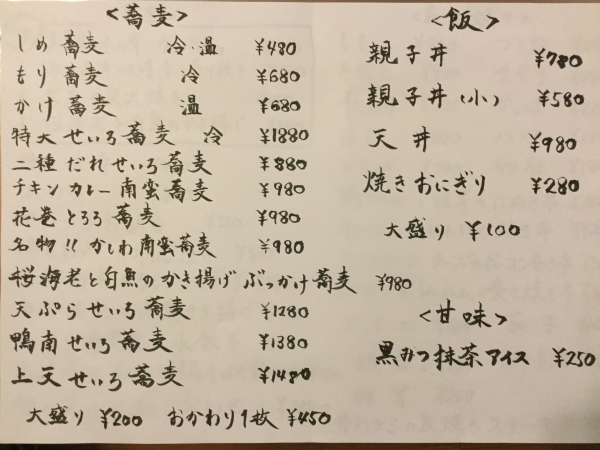 <蕎麦>
しめ蕎麦 冷・温 ¥480
もり蕎麦 冷 ¥680
かけ蕎麦 温 ¥680
特大せいろ蕎麦 冷 ¥1880
二種だれせいろ蕎麦 ¥880
チキンカレー南蛮蕎麦 ¥980
花巻とろろ蕎麦 ¥980
名物!!かしわ南蛮蕎麦 ¥980
桜海老と白魚のかき揚げぶっかけ蕎麦 ¥980
天ぷらせいろ蕎麦 ¥1280
鴨南せいろ蕎麦 ¥1380
上天せいろ蕎麦 ¥1480
大盛り ¥200 おかわり1枚 ¥450
<飯>
親子丼 ¥780
親子丼(小) ¥580
天丼 ¥980
焼きおにぎり ¥280
大盛り ¥100
<甘味>
黒みつ抹茶アイス ¥250